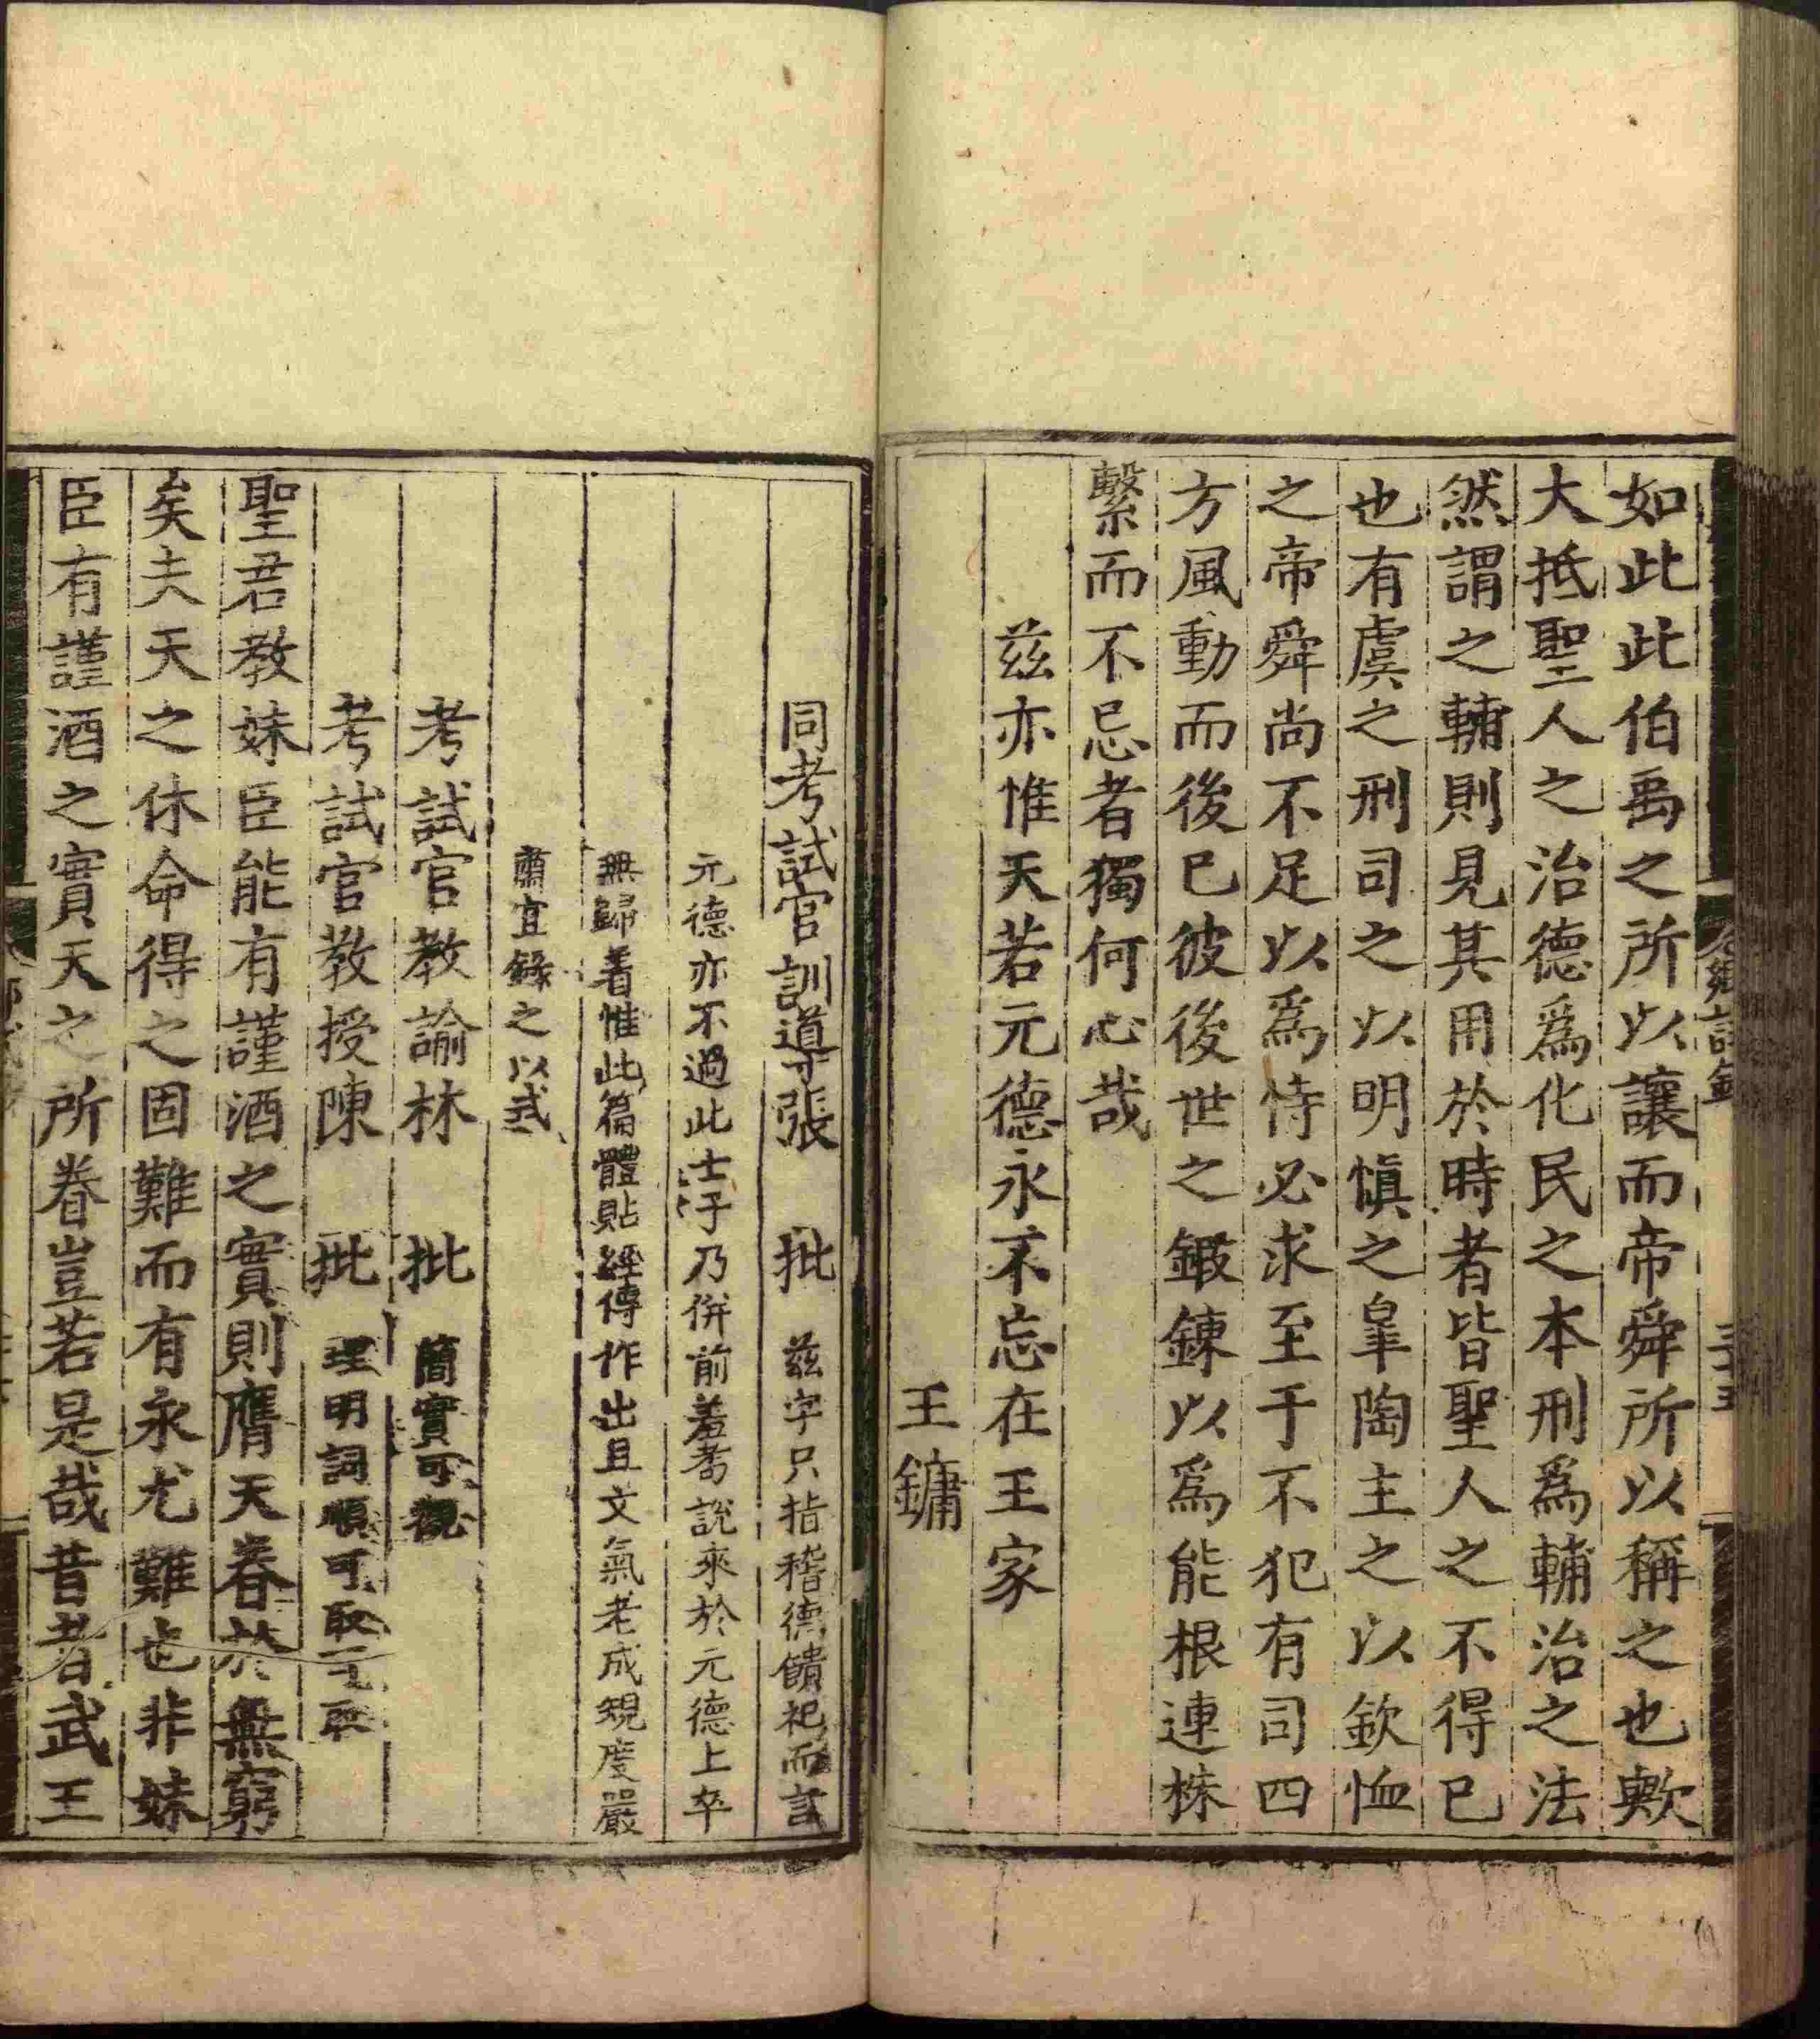 如此此伯禹之所以讓而帝舜所以稱之也歟
大抵聖人之治德爲化民之本刑爲輔治之法
然謂之輔則見其用於時者皆聖人之不得已
也有虞之刑司之以明愼之臯陶主之以欽恤
之帝舜尚不足以爲恃必求至于不犯有司四
方風動而後已彼後世之鍛鍊以爲能根連株
繫而不忌者獨何心哉
茲亦惟天若元德永不忘在王家
王鏞
同考試官訓導張　批　茲字只指稽德饋祀而言
元德亦不過此士子乃併前羞耇說來於元德上卒
無歸着惟此篇體貼經傳作出且文氣老成規度嚴
肅宜錄之以式
考試官教諭林　批　簡實可觀
考試官教授陳　批　理明詞順可取可取
聖君教妹臣能有謹酒之實則膺天眷於無窮
矣夫天之休命得之固難而有永尤難也非妹
臣有謹酒之實天之所眷豈若是哉昔者武王